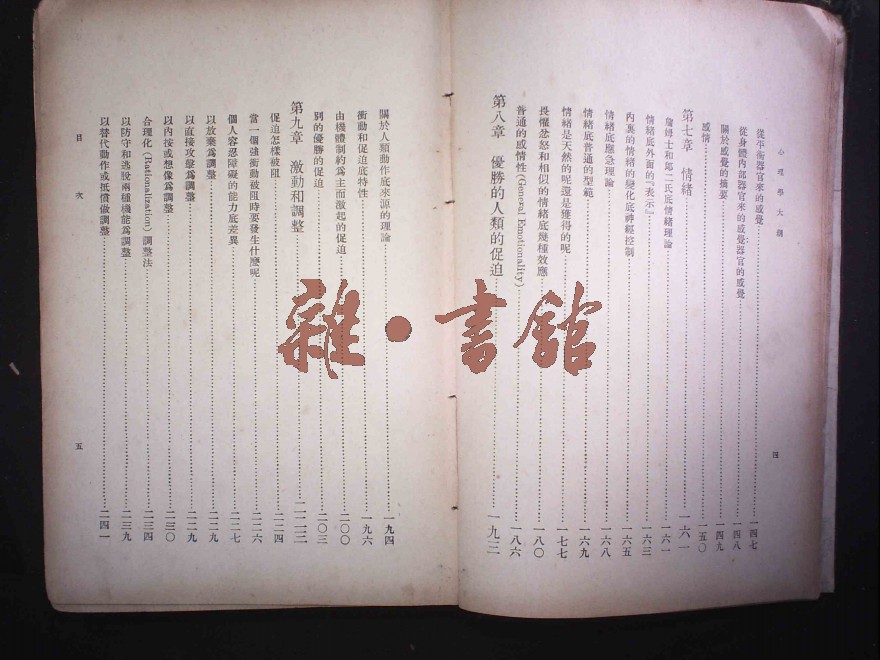 心理學大綱
從平衡器官來的感覺……一四七
從身體內部器官來的感覺器官的感覺……一四八
關於感覺的摘要……一四九
感情……一五〇
第七章 情緒……一六一
詹姆士和郎二氏底情緒理論……一六一
情緒底外面的『表示』……一六三
內裏的情緒的變化底神經控制……一六五
情緒底應急理論……一六八
情緒底普通的型範……一六九
情緒是天然的呢還是獲得的呢……一七七
畏懼忿怒和相似的情緒底幾種效應……一八〇
普通的感情性(General Emotionality)……一八六
第八章 優勝的人類的促迫……一九三
四
關於人類動作底來源的理論……一九四
衝動和促迫底特性……一九六
由機體制約爲主而激起的促迫……二〇〇
別的優勝的促迫……二〇三
第九章 激動和調整……二二三
促迫怎樣被阻……二二四
當一個強衝動被阻時要發生什麼呢……二二六
個人容忍障礙的能力底差異……二二七
以放棄爲調整……二二九
以直接攻擊爲調整……二二九
以內接或想像爲調整……二三〇
合理化(Rationalization)調整法……二三四
以防守和逃脫兩種機能爲調整……二三九
以替代動作或抵償做調整……二四一
目次
五
雜·書館